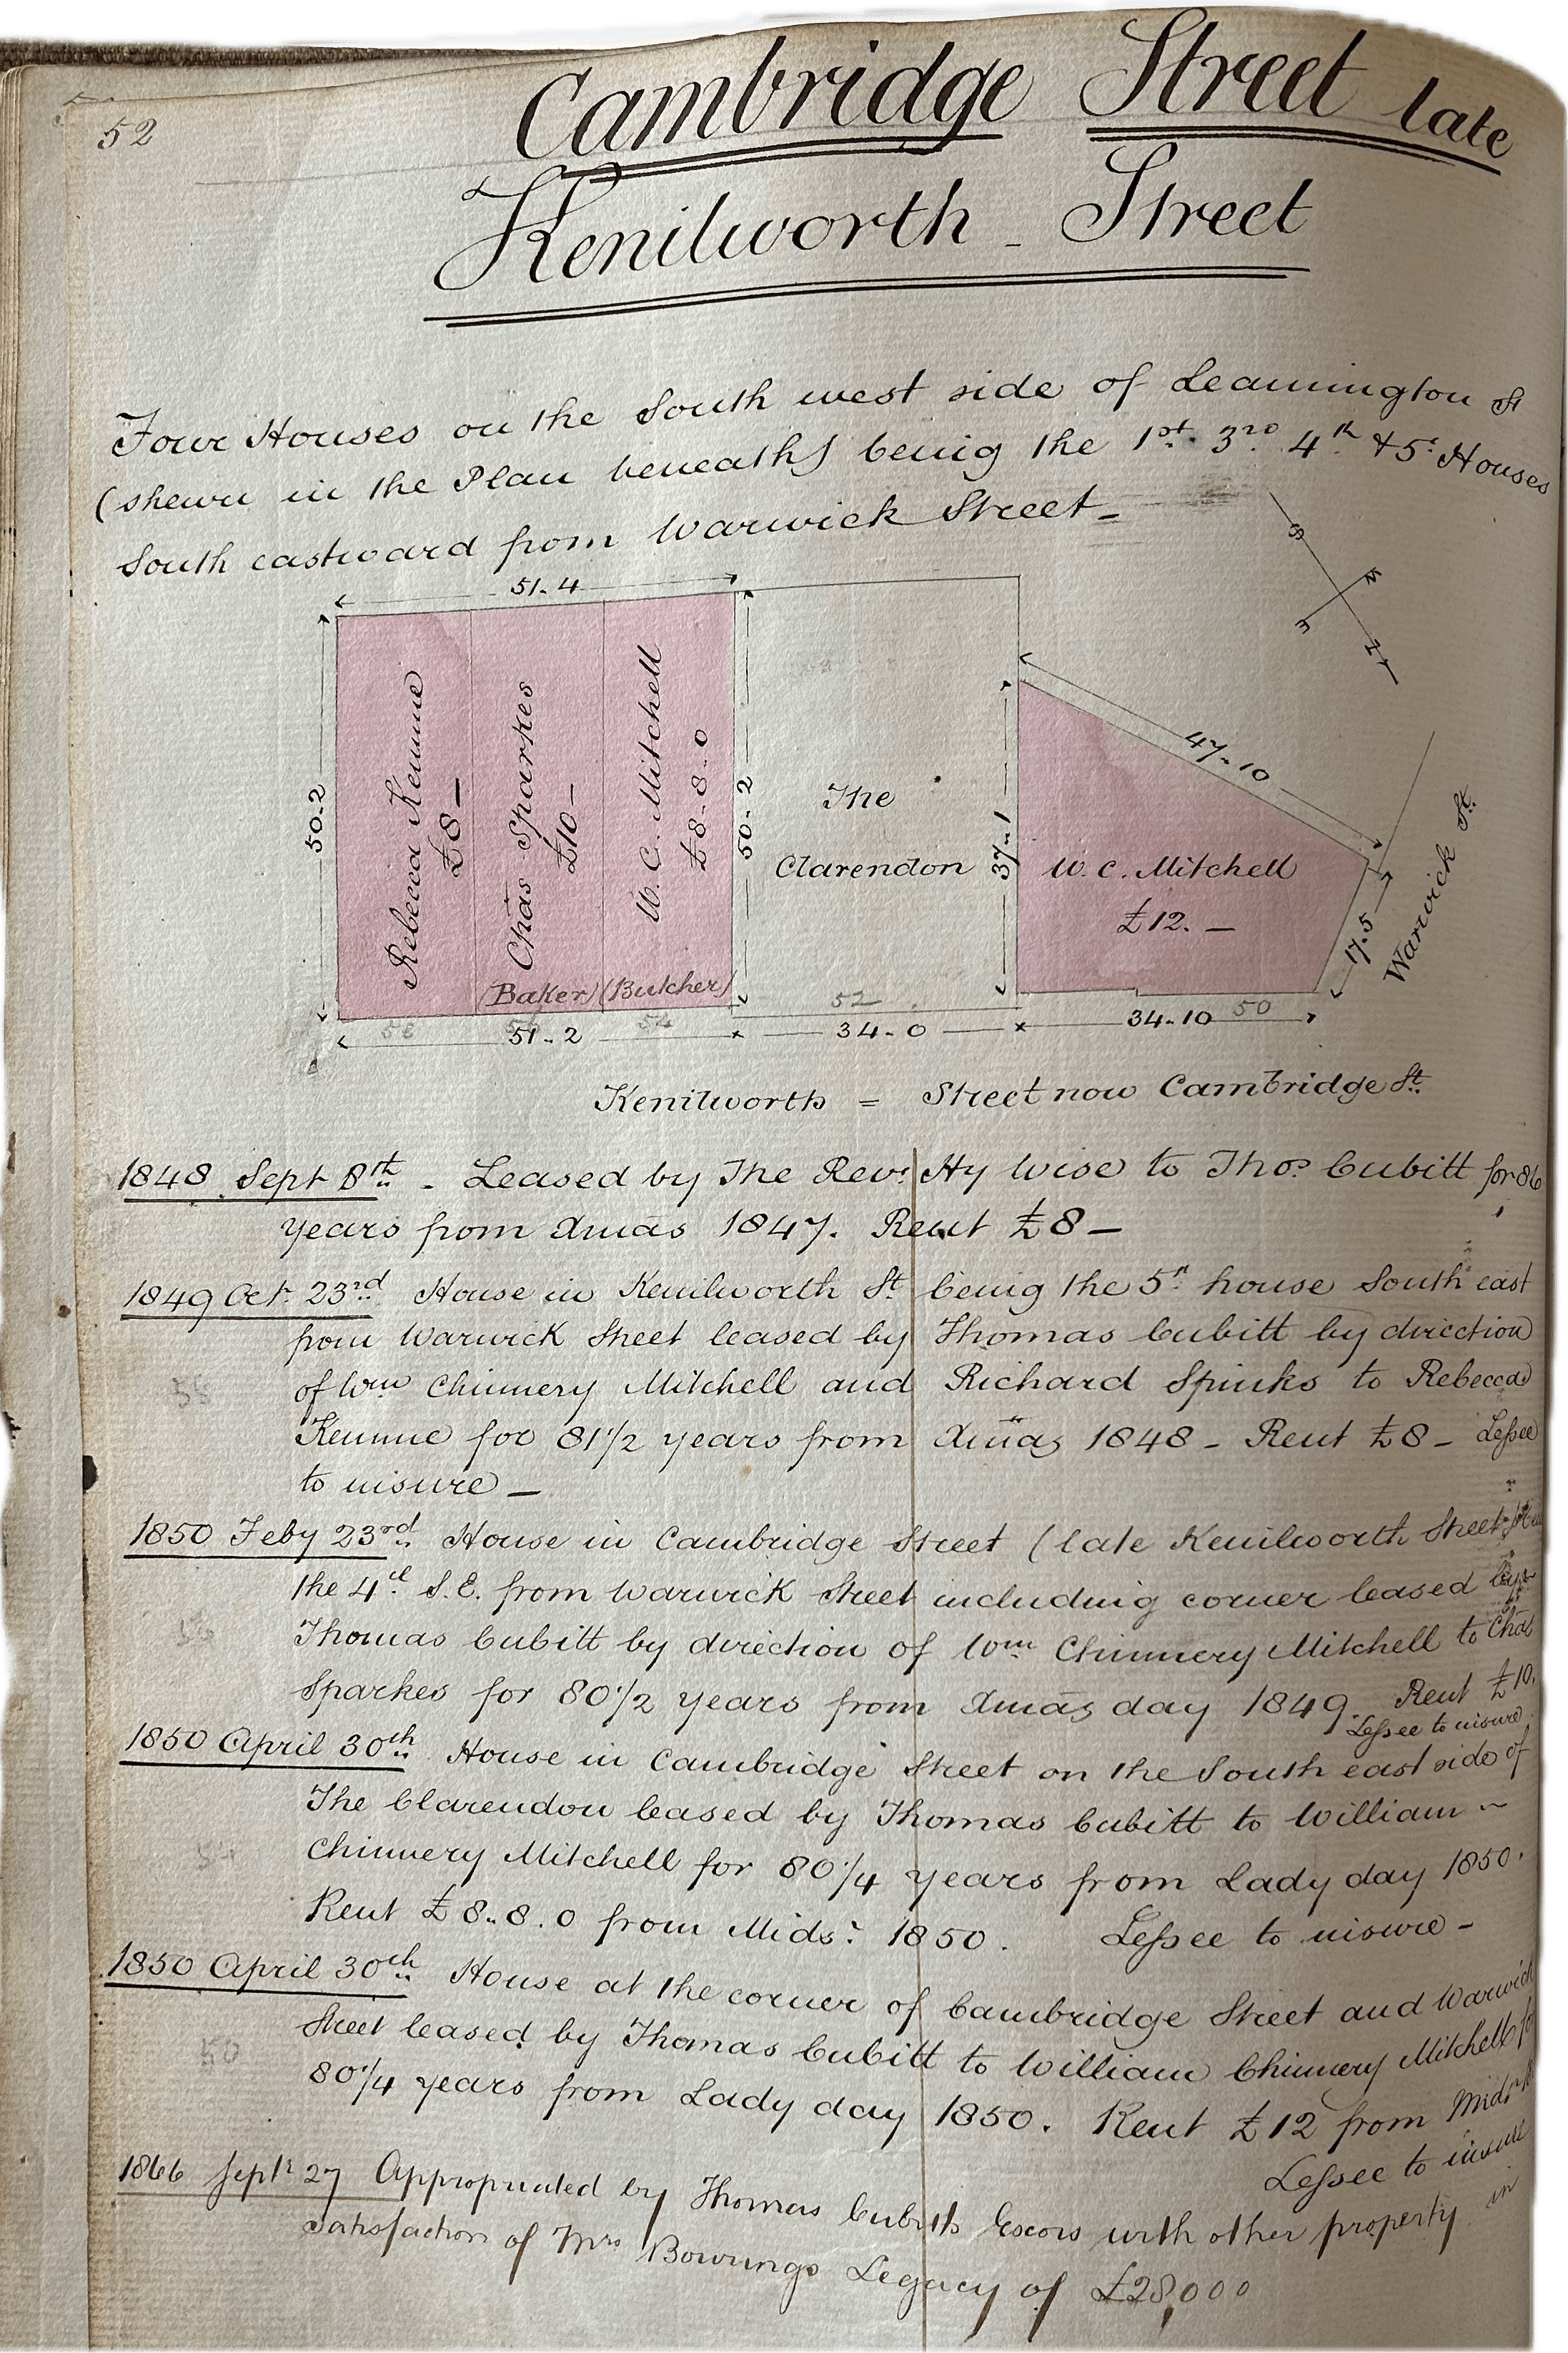 52
Cambridge Street late
Kenilworth - Street
Four Houses on the South west side of Leamington St
(shewn in the Plan beneath) being the 1st. 3rd. 4th & 5th Houses
South eastward from Warwick Street -
S
W
E
N
51.4
50.2
Rebecca Kemme
£8 -
Chas Sparkes
£10 -
W. C. Mitchell
£8-8-0
(Baker) (Butcher)
50-2
The
Clarendon
37.1
W. C. Mitchell
£12. -
47-10
17.5
Warwick St.
58
54
52
50
51-2
34-0
34-10
Kenilworth = Street now Cambridge St.
1848 Sept 8th - Leased by The Revd. Hy Wise to Thos. Cubitt for 86
years from Xmas 1847. Rent £8 -
1849 Oct. 23rd House in Kenilworth St being the 5th house South east
from Warwick Street leased by Thomas Cubitt by direction
of Wm Chinnery Mitchell and Richard Spinks to Rebecca
Kemme for 81 1/2 years from Xmas 1848 - Rent £8 - Lessee
to insure -
1850 Feby 23rd House in Cambridge Street (late Kenilworth Street
the 4th S.E. from Warwick Street including corner leased by
Thomas Cubitt by direction of Wm Chinnery Mitchell to Chas
Sparkes for 80 1/2 years from Xmas day 1849. Rent £10.
Lessee to insure
1850 April 30th House in Cambridge Street on the South east side of
The Clarendon leased by Thomas Cubitt to William ~
54
Chinnery Mitchell for 80 1/4 years from Lady day 1850.
Rent £8.8.0 from Mids: 1850. Lessee to insure -
1850 April 30th House at the corner of Cambridge Street and Warwick
Street leased by Thomas Cubitt to William Chinnery Mitchell for
50
80 1/4 years from Lady day 1850. Rent £12 from Midsr
Lessee to insure
1866 Septr 27 Appropriated by Thomas Cubitts Excors with other property in
satisfaction of Mrs Bowrings Legacy of £28,000